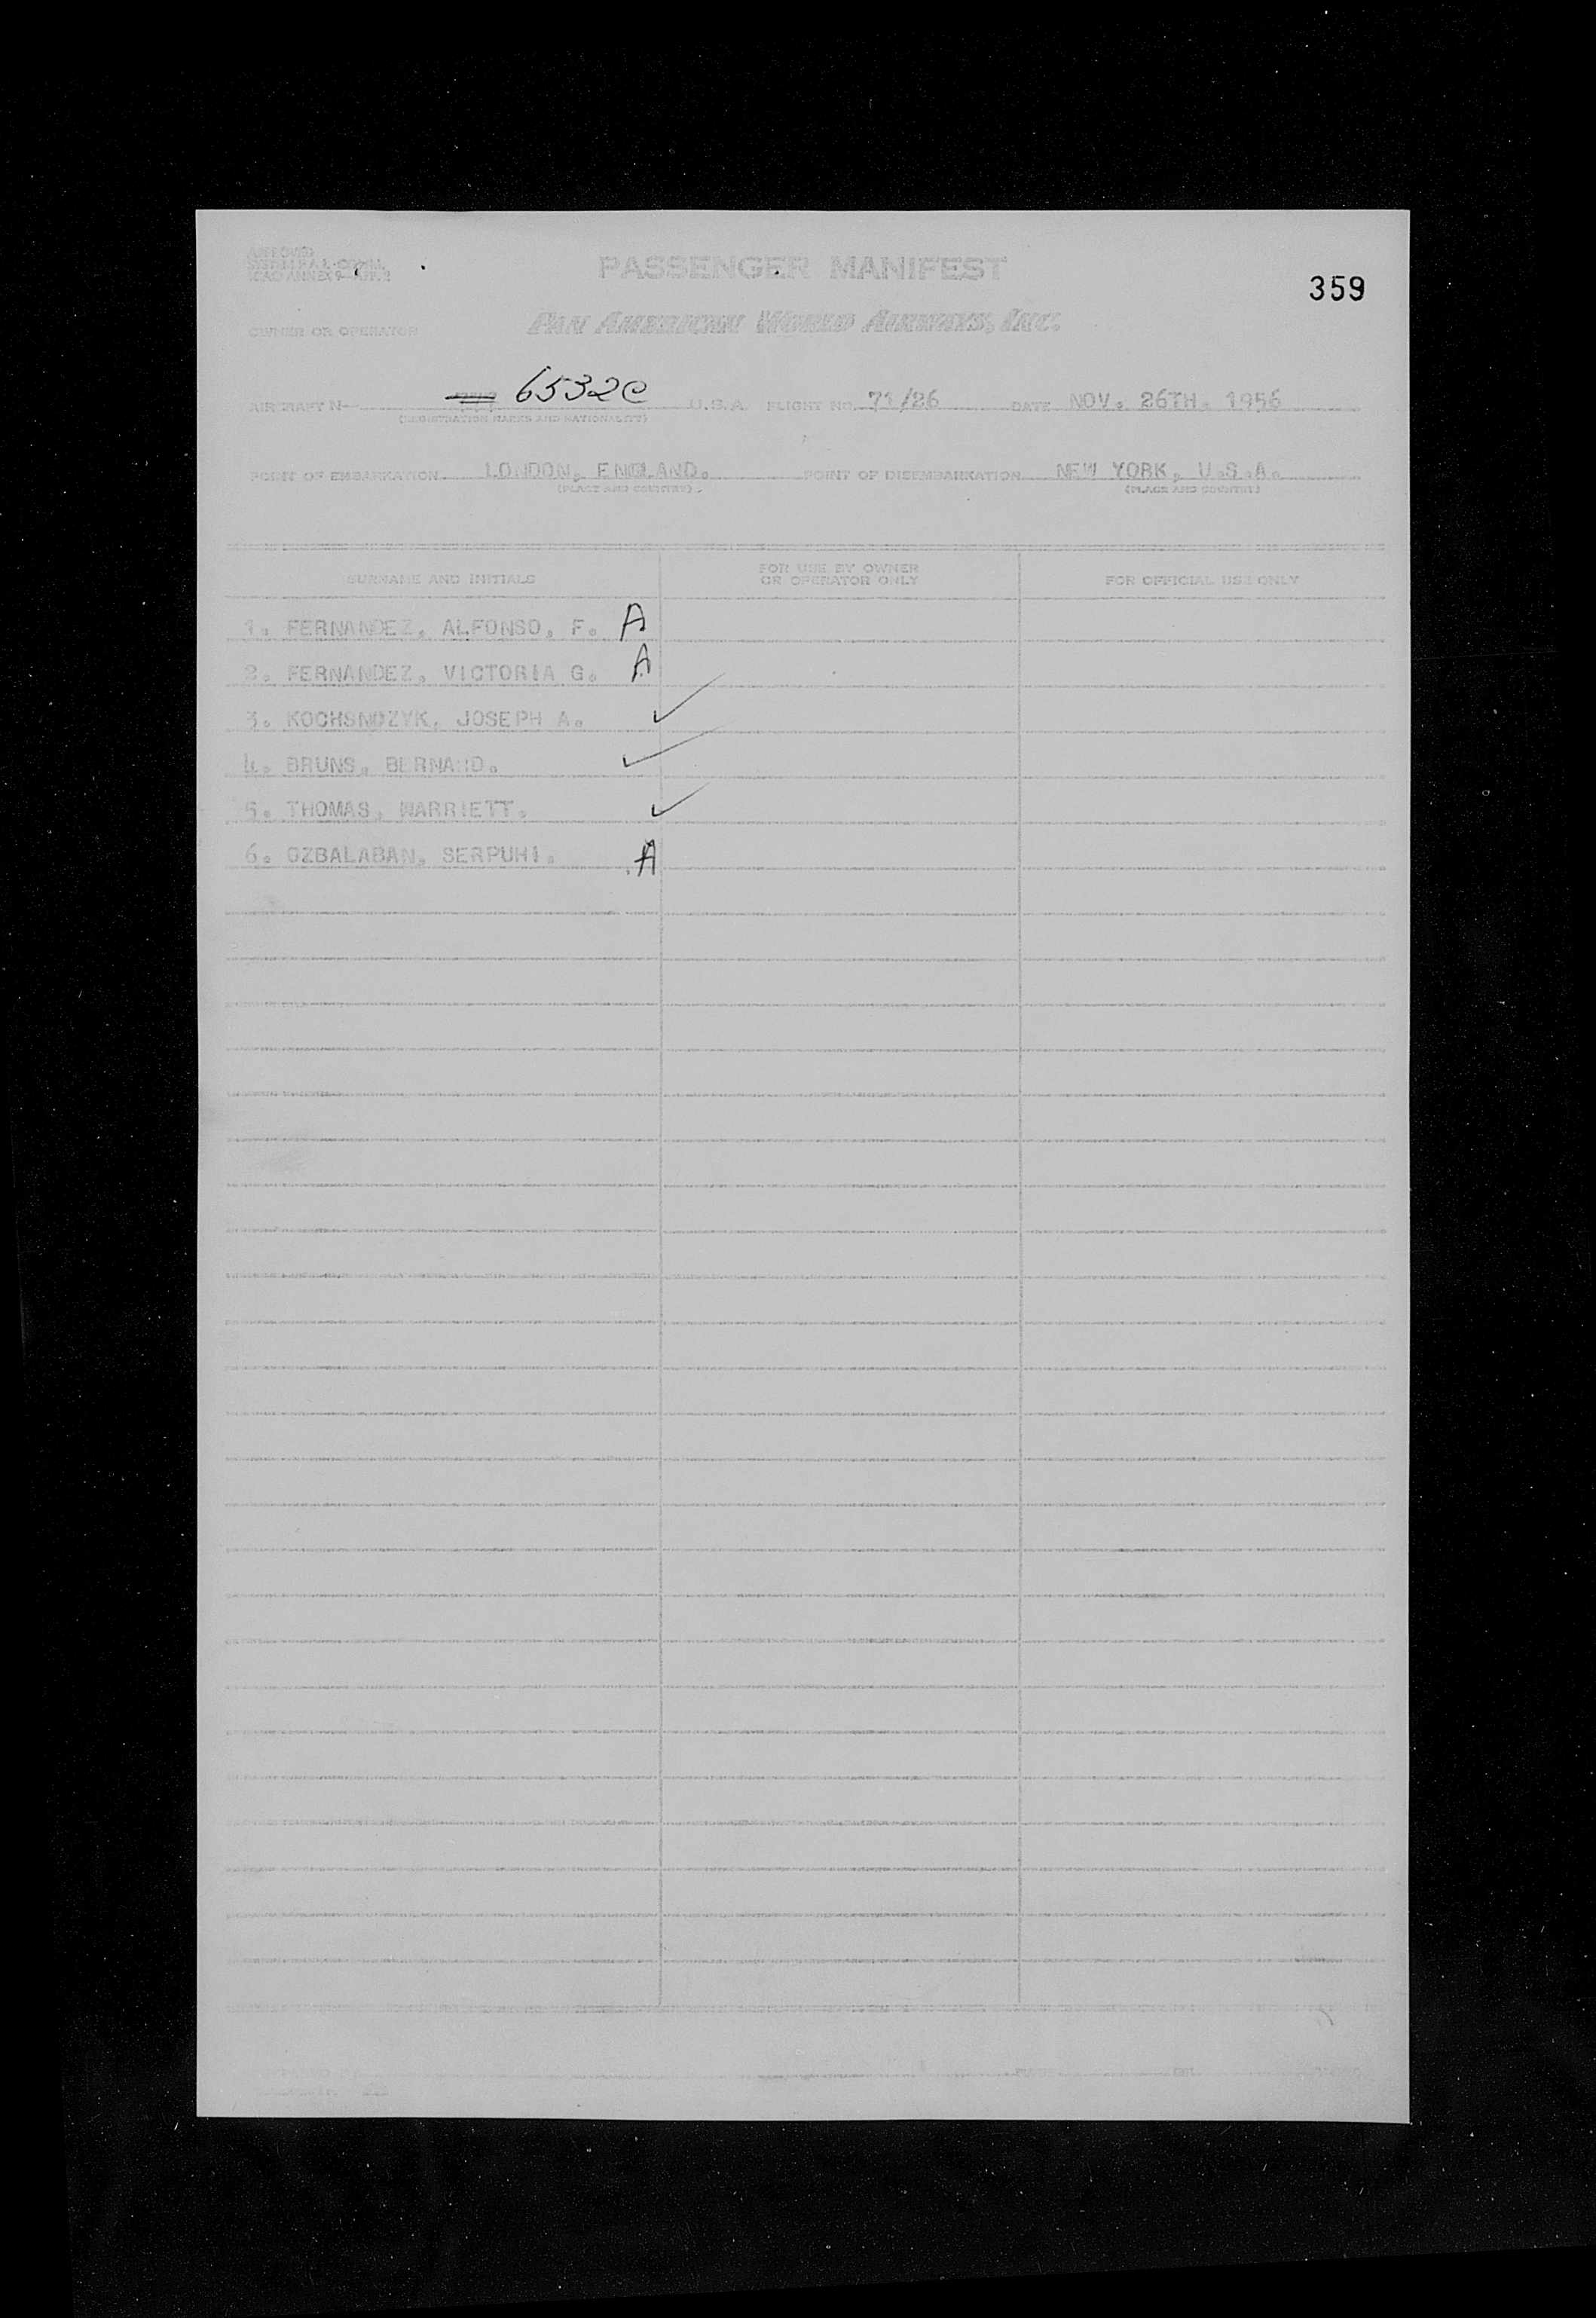 PASSENGER MANIFEST
359
OWNER OR OPERATOR PAN AMERICAN WORLD AIRWAYS, INC.
AIRCRAFT N- 6532C U.S.A. FLIGHT NO. 71/26 DATE NOV. 26TH. 1956
(REGISTRATION MARKS AND NATIONALITY)
POINT OF EMBARKATION LONDON, ENGLAND. POINT OF DISEMBARKATION NEW YORK, U.S.A.
(PLACE AND COUNTRY) (PLACE AND COUNTRY)
SURNAME AND INITIALS FOR USE BY OWNER OR OPERATOR ONLY FOR OFFICIAL USE ONLY
1. FERNANDEZ, ALFONSO, F. A
2. FERNANDEZ, VICTORIA G. A
3. KOCHSNDZYK, JOSEPH A. ✓
4. BRUNS, BERNARD. ✓
5. THOMAS, WARRIETT. ✓
6. OZBALABAN, SERPUHI. A